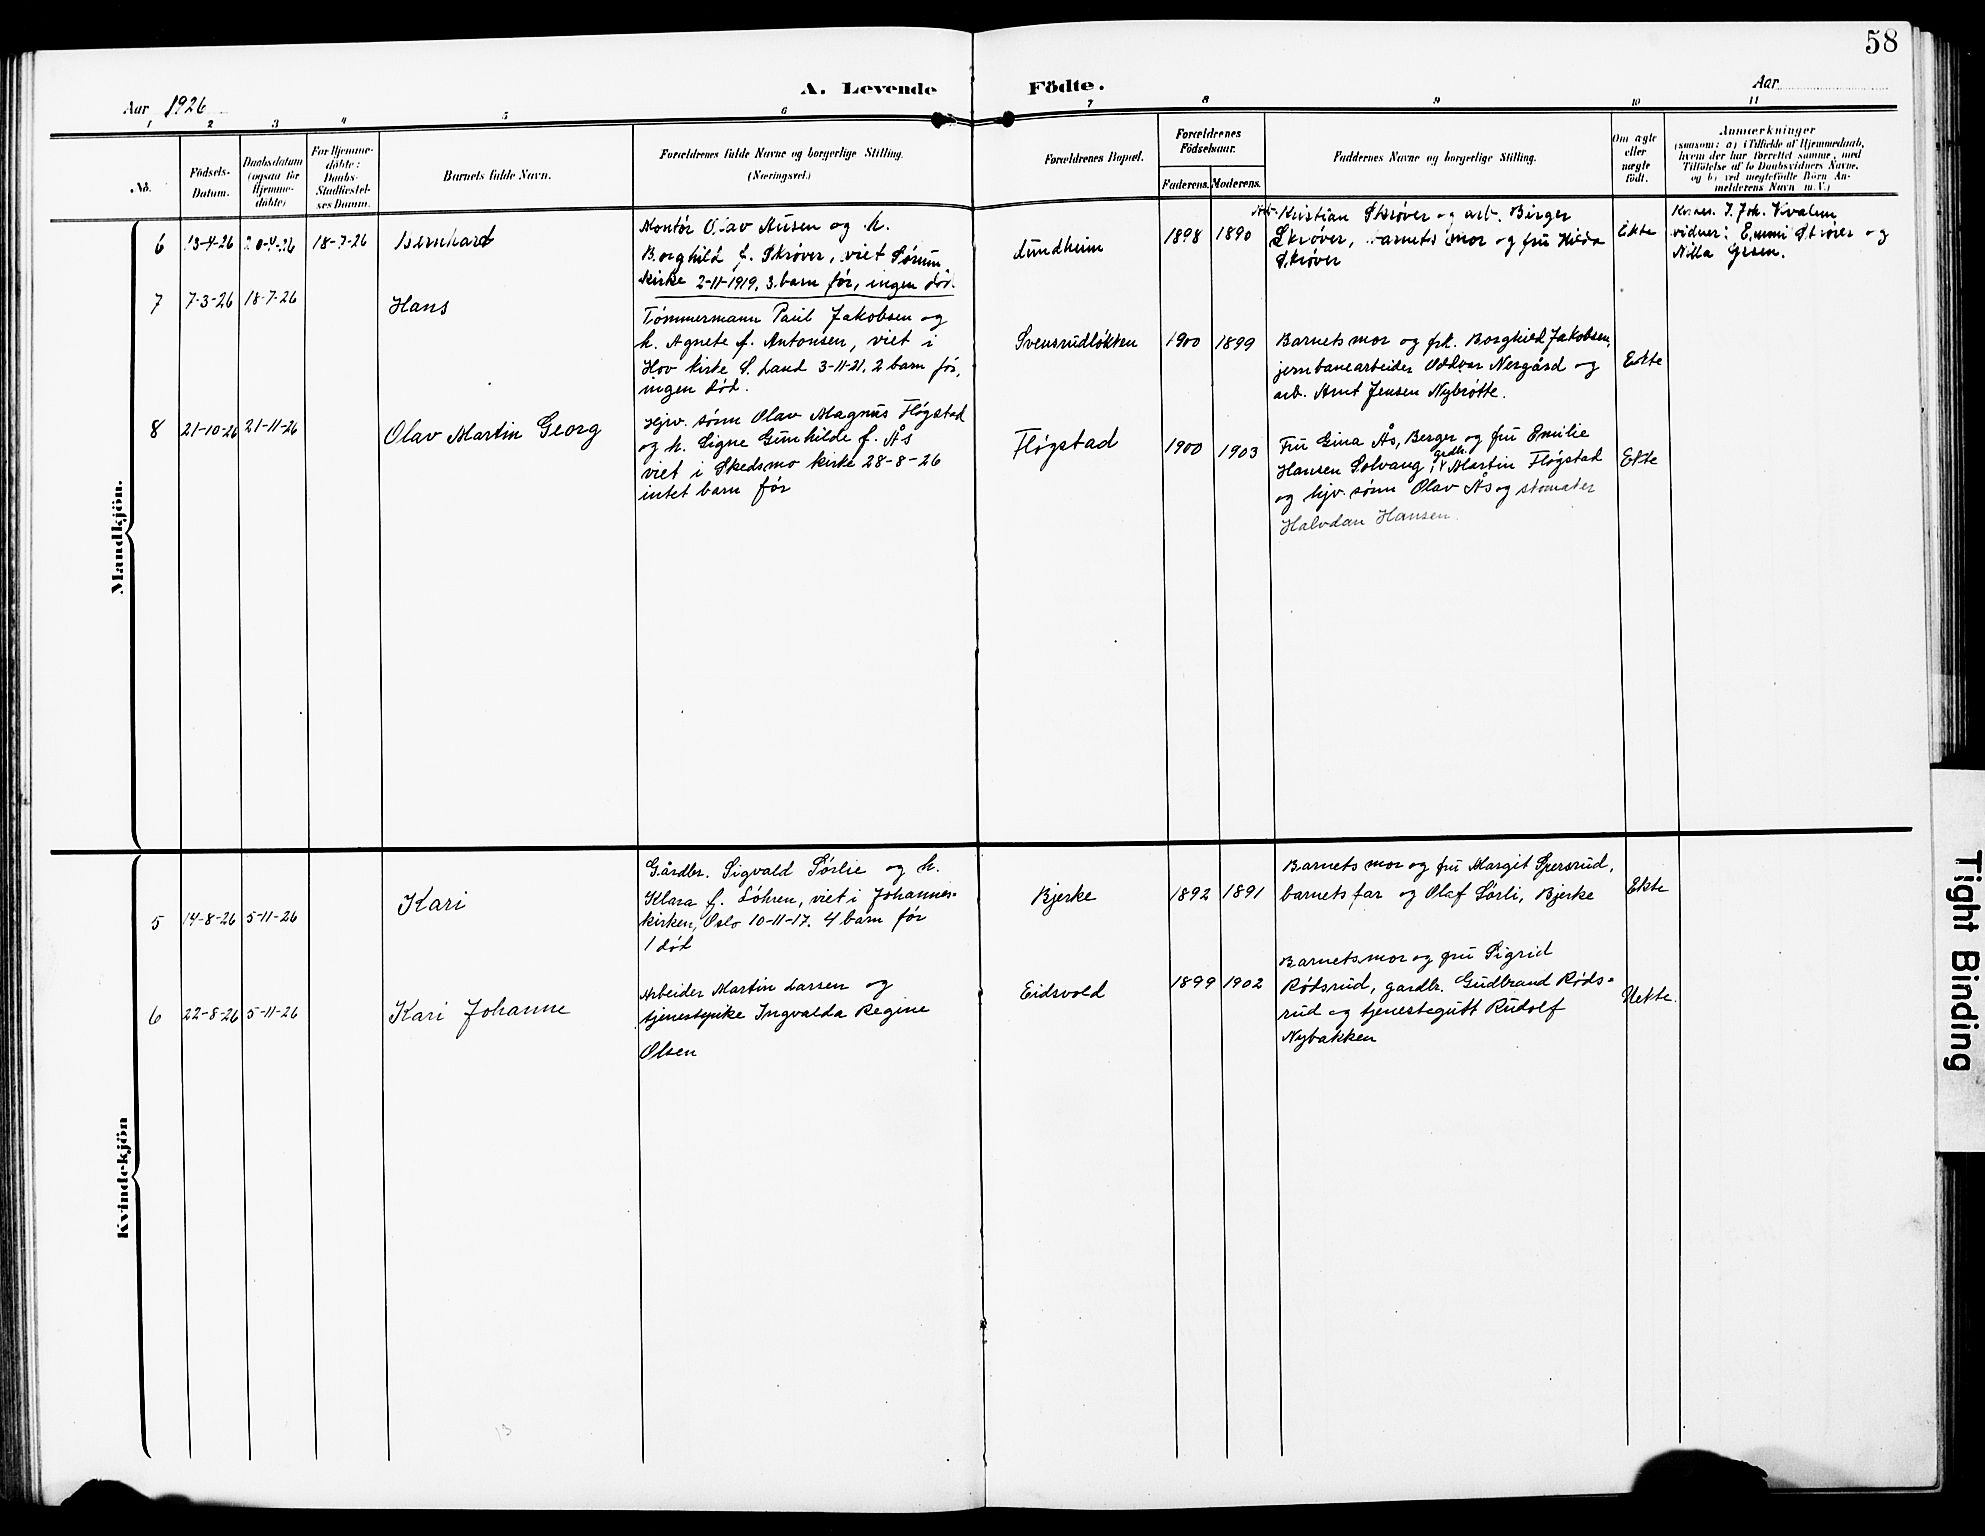 58
A. Levende Födte.
Aar 1926
Aar
1 2 3 4 5 6 7 8 9 10 11
No.
Födsels-Datum.
Daabsdatum (ogsaa for Hjemme-døbte)
For Hjemme-døbte: Daabs-Stadfæstel-ses Datum.
Barnets fulde Navn.
Forældrenes fulde Navne og borgerlige Stilling. (Næringsvei.)
Forældrenes Bopæl.
Forældrenes Födselsaar.
Faderens. Moderens.
Faddernes Navne og borgerlige Stilling.
Om ægte eller uægte födt.
Anmærkninger
(saasom: a) i Tilfælde af Hjemmedaab,
hvem der har forrettet samme, med
Tilföielse af to Daabsvidners Navne,
og b) ved uægtefödte Börn An-
melderens Navn m.V.)
Mandkjön.
6 13-4-26 20-4-26 18-7-26 Bernhard
Montør Olav Ausen og h.
Borghild f. Skrøver, viet Sørum
kirke 2-11-1919. 3. barn før, ingen død.
Lundheim 1898 1890
Arb. Kristian Skrøver og arb. Birger
Skrøver, barnets mor og fru Hilda
Skrøver
Ekte
J. Joh. Kvalem
vidner: Emmi Skrøver og
Nilla
7 7-3-26 18-7-26 Hans
Tømmermann Paul Jakobsen og
h. Agnete f. Antonsen, viet i
Hov kirke S. Land 3-11-21. 2 barn før,
ingen død.
Svensrudløkken 1900 1899
Barnets mor og frk. Borghild Jakobsen,
jernbanearbeider Oddvar Nergård og
arb. Arnt Jensen Nybrøtte.
Ekte
8 21-10-26 21-11-26 Olav Martin Georg
Gjrv. sønn Olav Magnus Fløgstad
og h. Signe Gunhilde f. Ås
viet i Skedsmo kirke 28-8-26
intet barn før
Fløgstad 1900 1903
Fru Gina Ås, Berger og fru Emilie
Hansen Solvang, grdbr. Martin Fløgstad
og hjv. sønn Olav Ås og stomater
Halvdan Hansen.
Ekte
Kvindekjön
5 14-8-26 5-11-26 Kari
Gårdbr. Sigvald Sørlie og h.
Klara f. Løhren, viet i Johannes-
kirken, Oslo 10-11-17. 4 barn før
1 død
Bjerke 1892 1891
Barnets mor og fru Margit Spersrud,
barnets far og Olaf Sørli, Bjerke
Ekte
6 22-8-26 5-11-26 Kari Johanne
Arbeider Martin Larsen og
tjenestpike Ingvalda Regine
Olsen
Eidsvold 1899 1902
Barnets mor og fru Sigrid
Rødsrud, gardbr. Gudbrand Røds-
rud og tjenestegutt Rudolf
Nybakken
Uekte.
13
Tight Binding